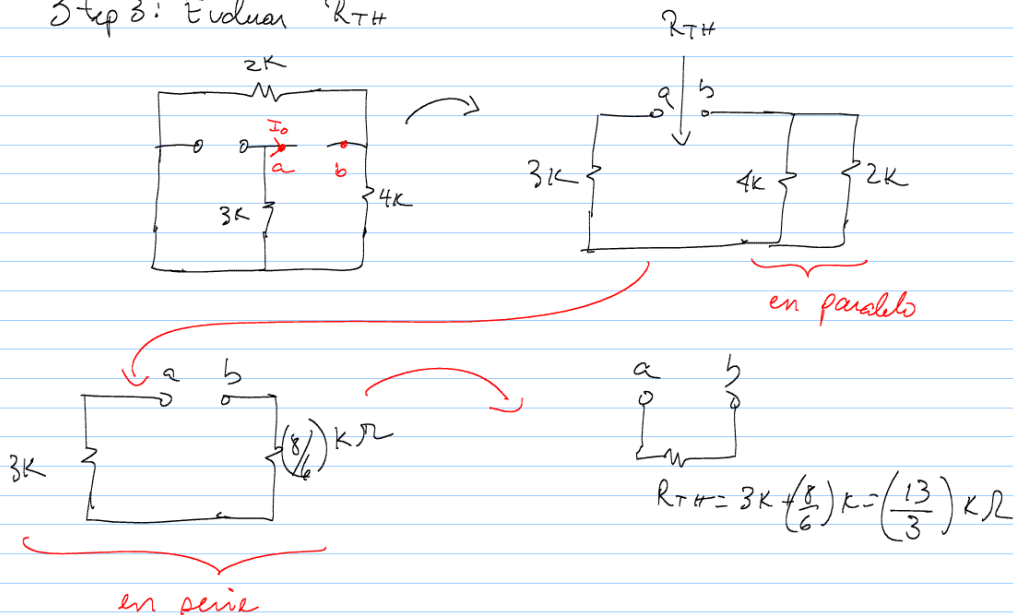 Step 3: Evaluar R_TH
2K
I₀
a
b
3K
4K
R_TH
a b
3K
4K
2K
en paralelo
a b
3K
(8/6) KΩ
en serie
a b
R_TH = 3K + (8/6) K = (13/3) KΩ